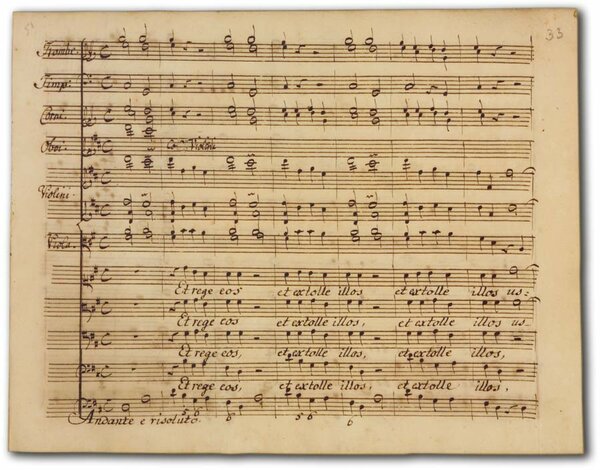 33
Trombe.
Timp:
Corni.
Oboi. Co: Violini
Violini
Viola.
Et rege eos et extolle illos et extolle illos us=
Et rege eos et extolle illos, et extolle illos us=
Et rege eos, et extolle illos, et extolle illos,
Et rege eos, et extolle illos, et extolle illos,
5 6 6 5 6 6
Andante e risoluto.